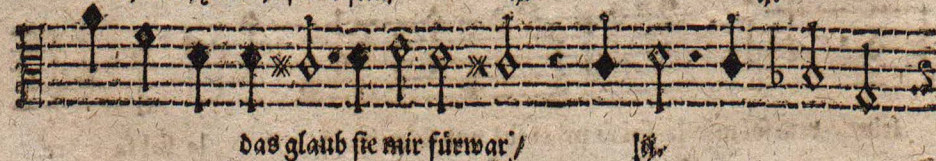 das glaub sie mir fürwar / ij.